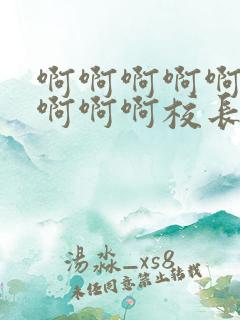 啊啊啊啊啊
啊啊啊校长
湯淼_xs8
未经同意禁止转载